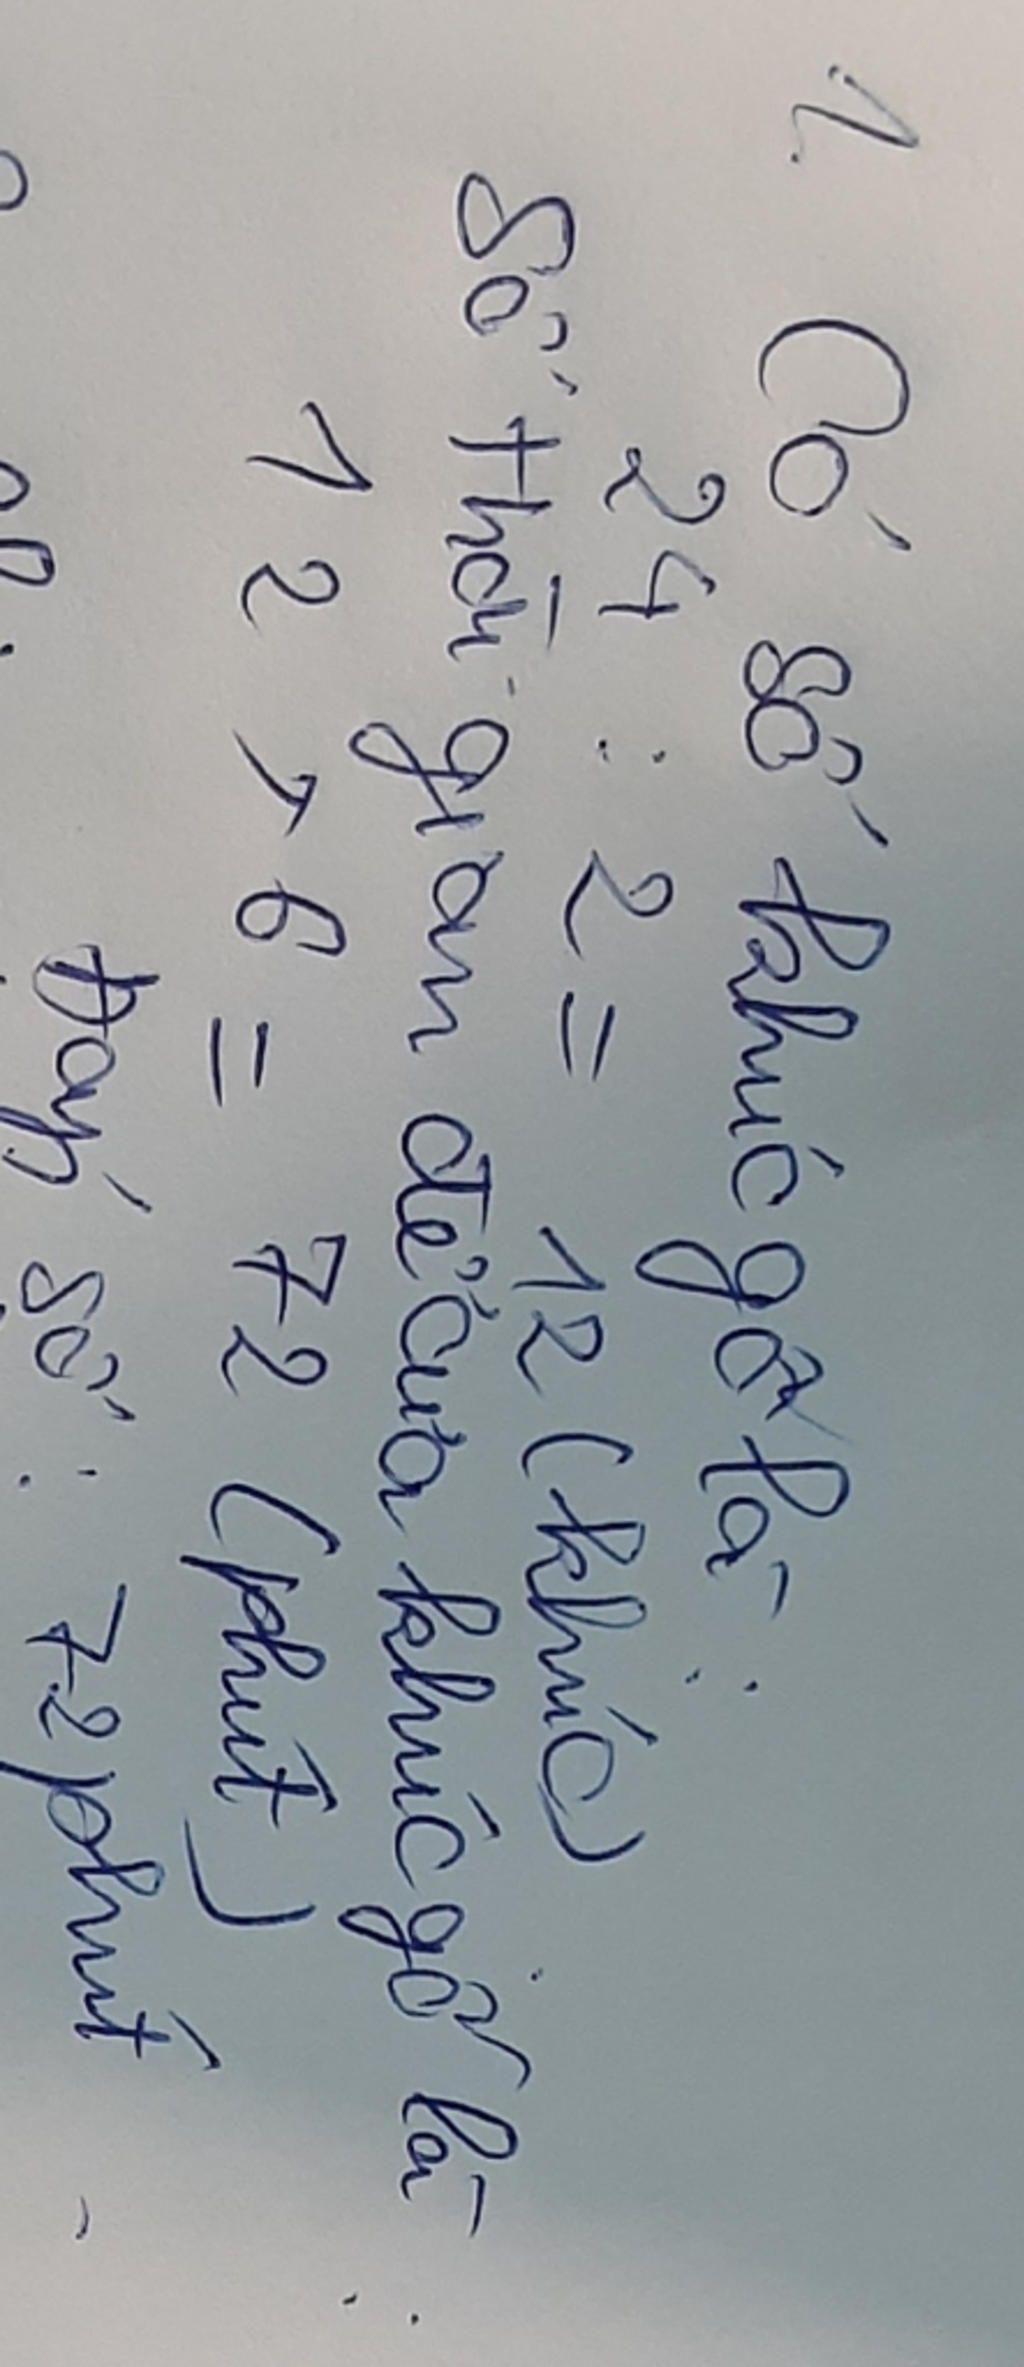 1. Có số khúc gỗ là:
24 : 2 = 12 (khúc)
Số thời gian để cưa khúc gỗ là:
12 x 6 = 72 (phút)
Đáp số: 72 phút